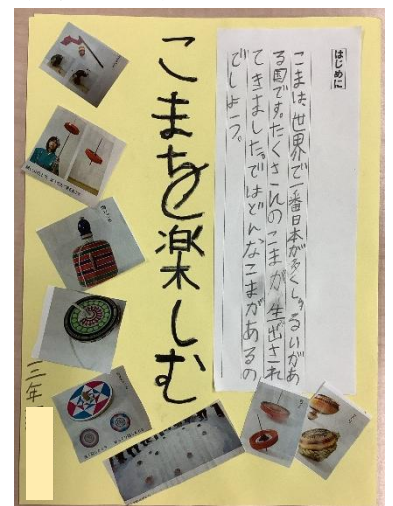 はじめに
こまは、世界で一番日本が多くしゅるいがあ
る国です。たくさんのこまが生出され
てきました。ではどんなこまがあるの
でしょう。
こまを楽しむ
三年